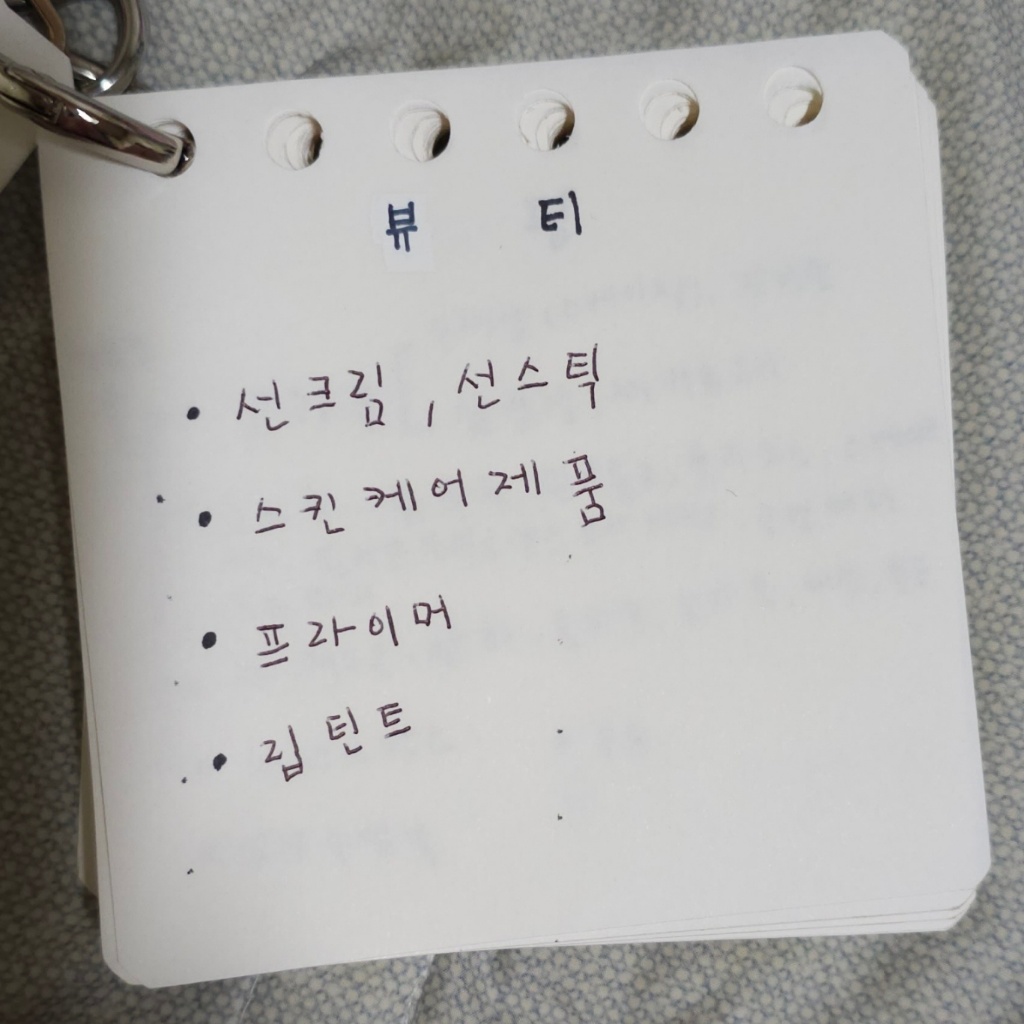 뷰 티
• 선크림, 선스틱
• 스킨케어제품
• 프라이머
• 립틴트